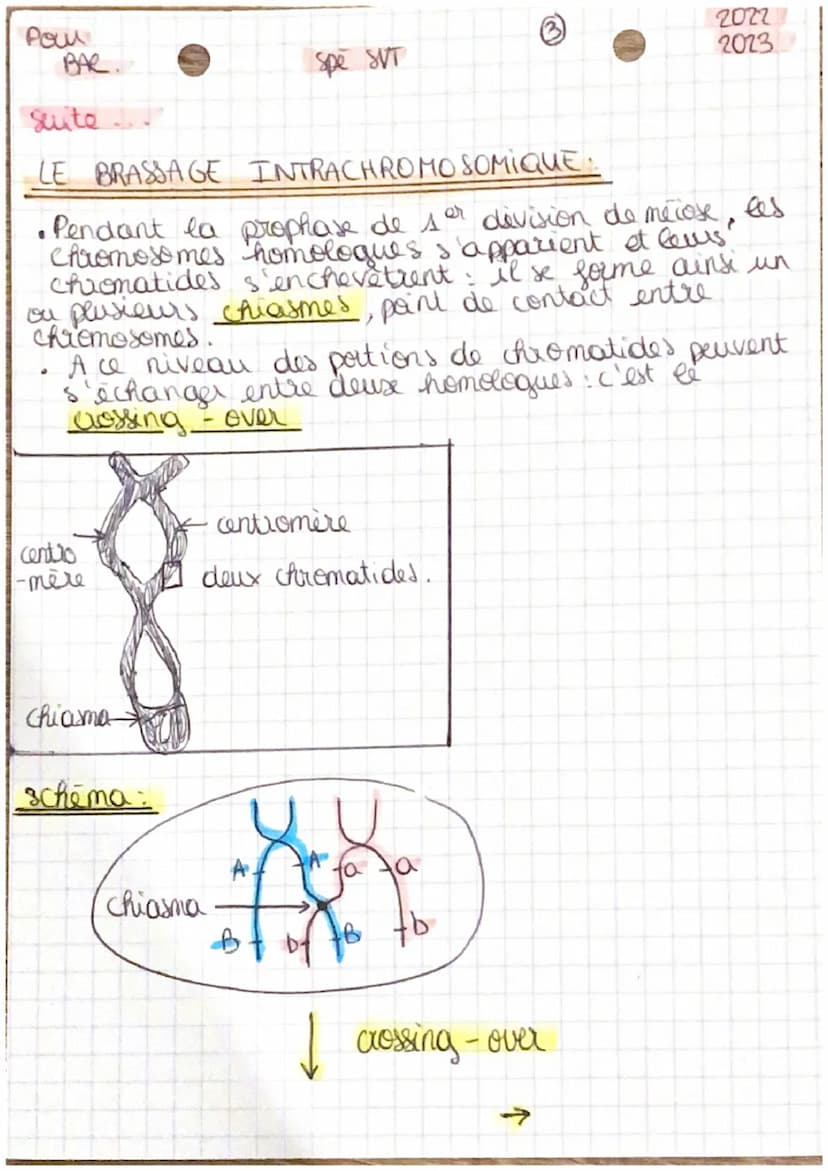 Pour BAC.
Spé SVT
③
2022
2023
suite ...
LE BRASSAGE INTRACHROMOSOMIQUE:
• Pendant la prophase de 1er division de méiose, les
chromosomes homologues s'apparient et leurs
chromatides s'enchevêtrent : il se forme ainsi un
ou plusieurs chiasmes, point de contact entre
chromosomes.
• A ce niveau des portions de chromatides peuvent
s'échanger entre deux homologues : c'est le
crossing-over
centromère
centro
-mère
deux chromatides.
chiasma
schéma:
A A a a
chiasma
B b B b
crossing-over
→